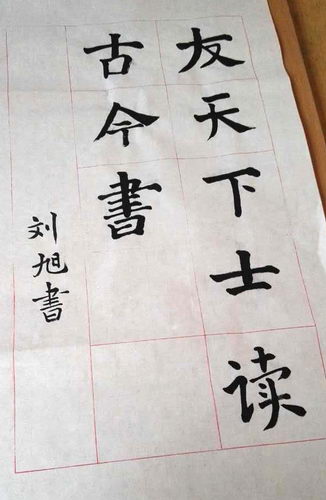 友天下士读
古今書
刘旭書